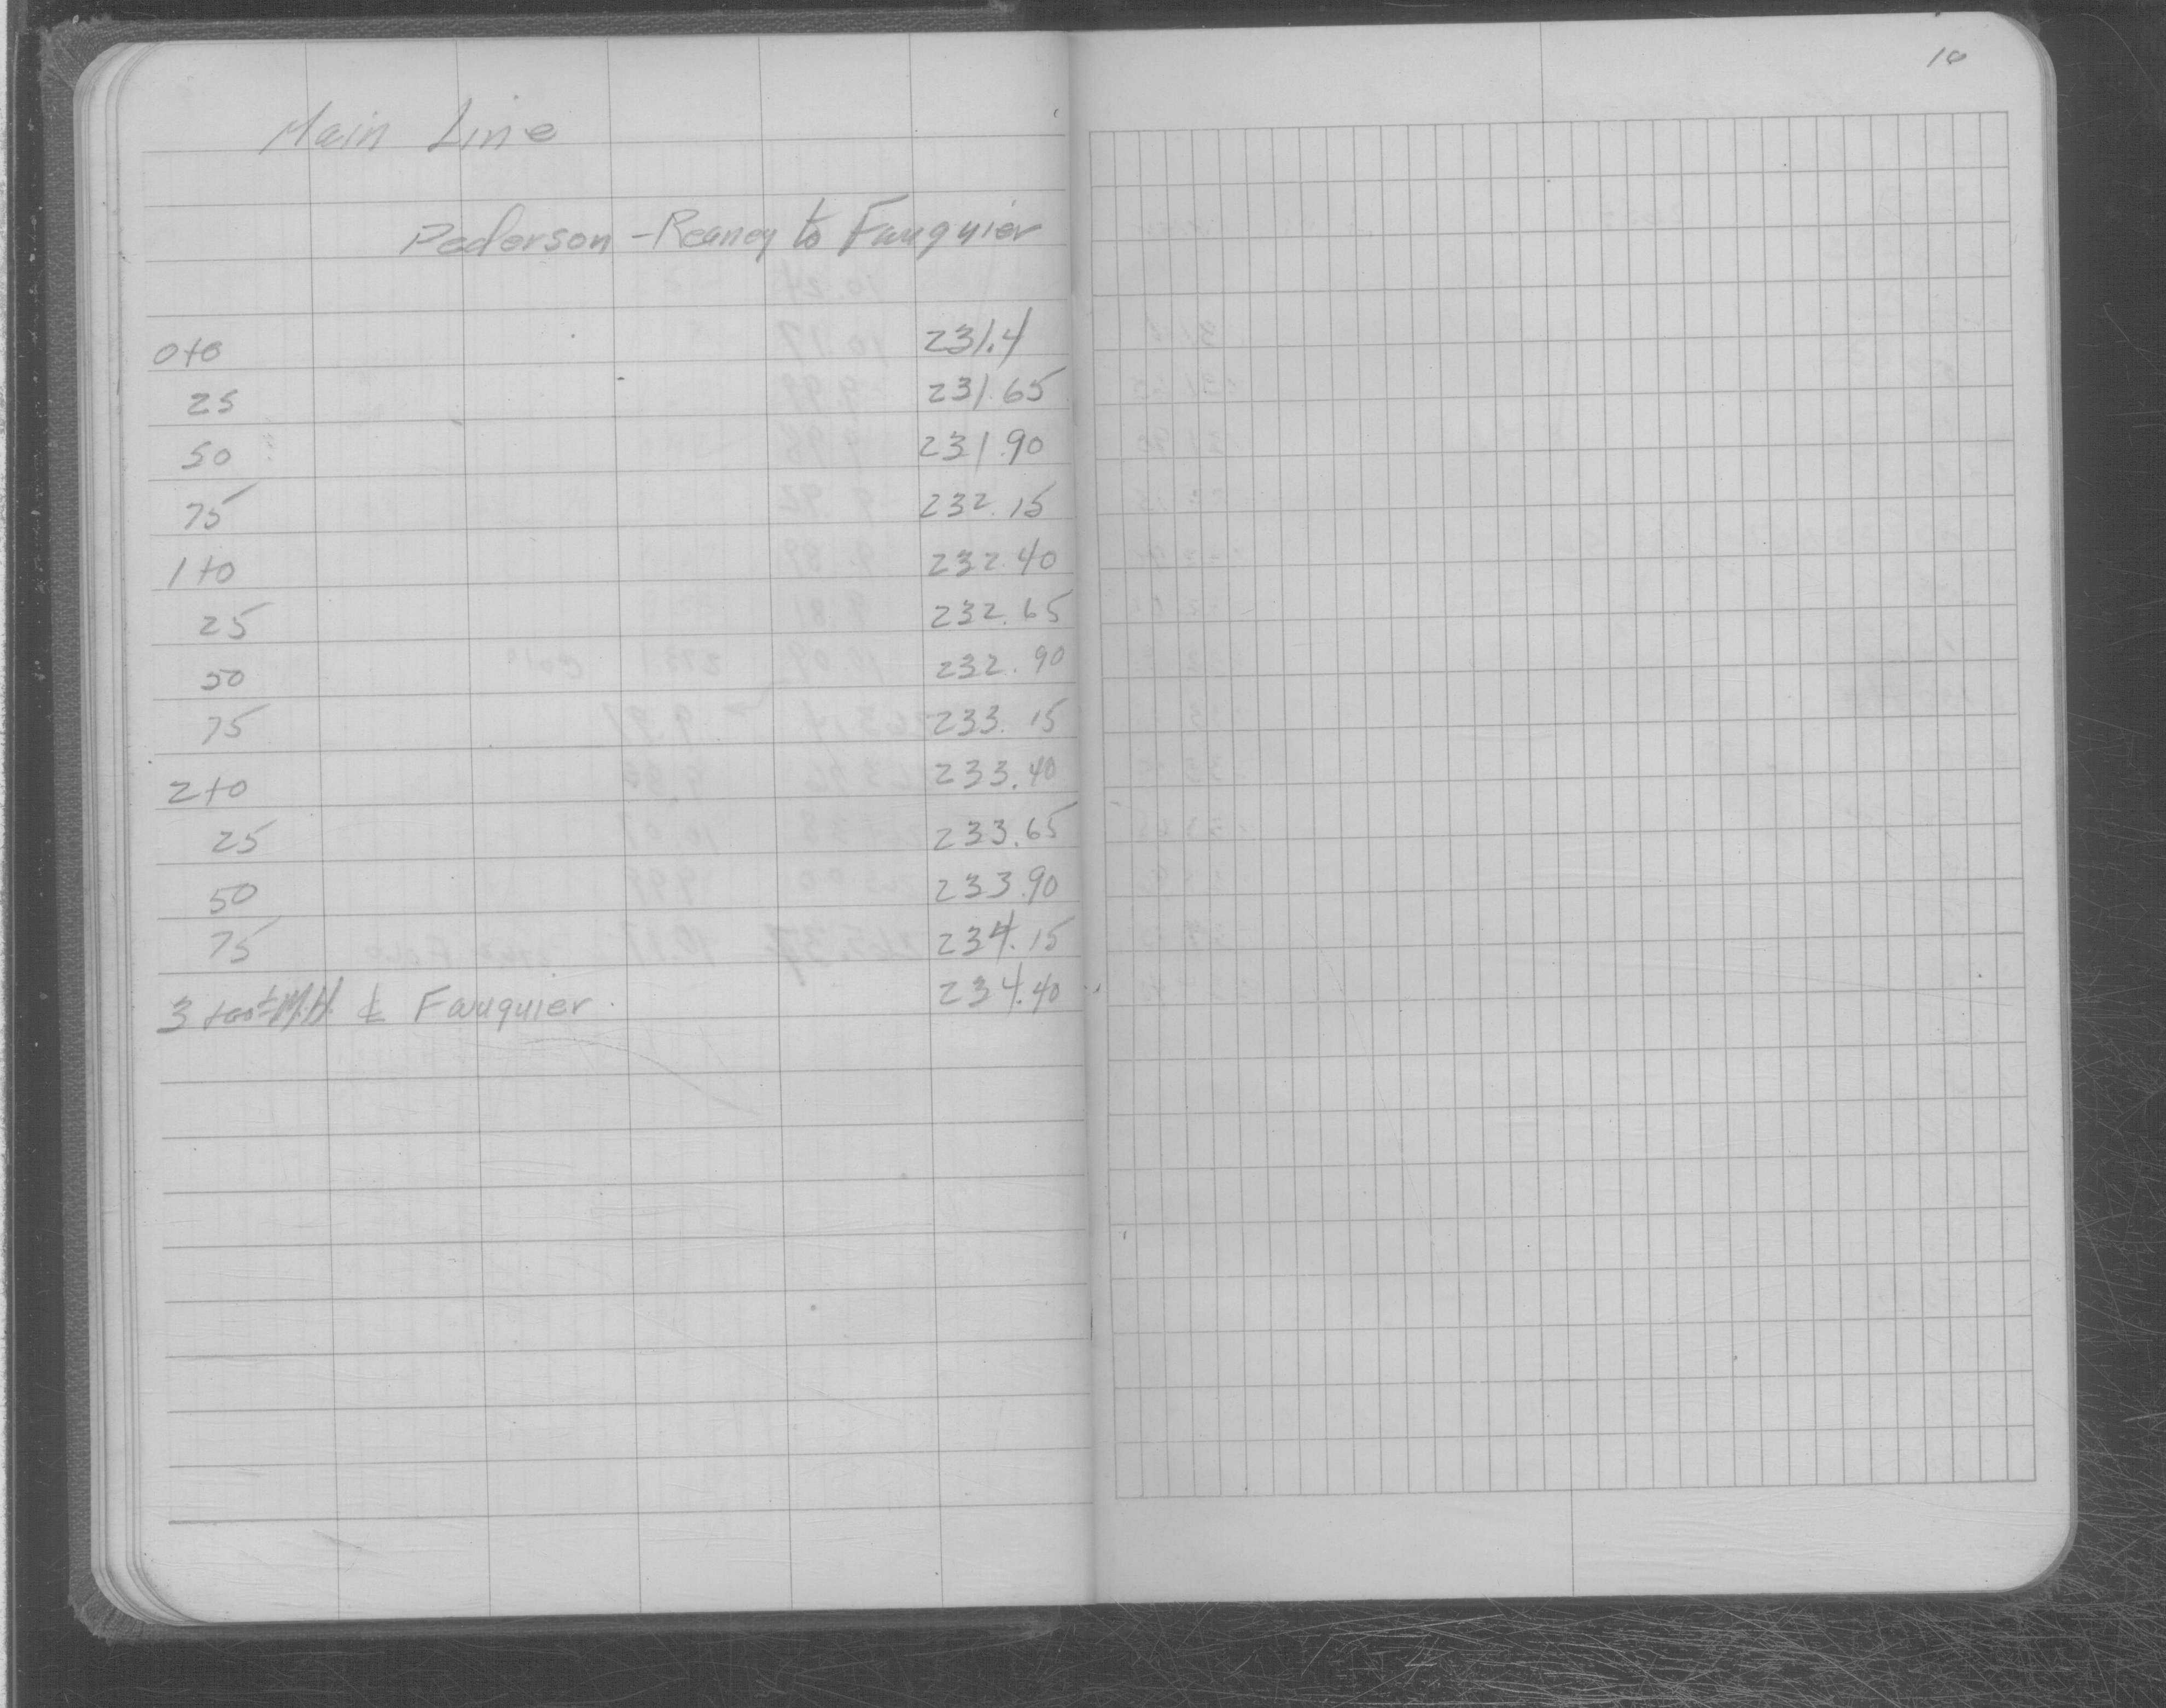 10
Main Line
Pederson - Reaney to Fauquier
0+0 231.4
25 231.65
50 231.90
75 232.15
1+0 232.40
25 232.65
50 232.90
75 233.15
2+0 233.40
25 233.65
50 233.90
75 234.15
3 +00 M.H. ℄ Fauquier 234.40